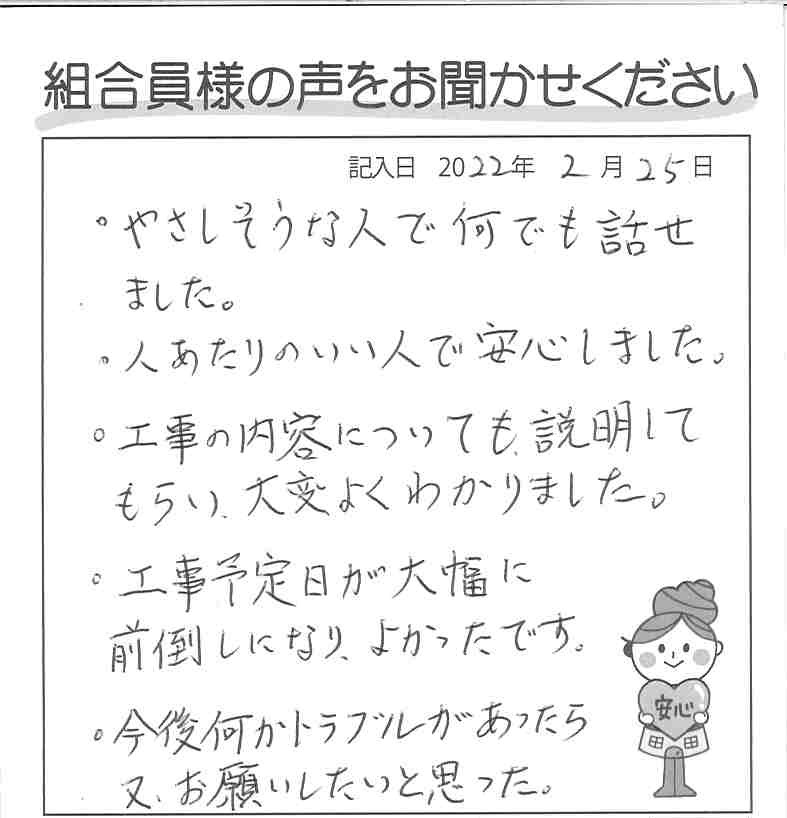 組合員様の声をお聞かせください
記入日 2022年 2月25日
。やさしそうな人で何でも話せ
ました。
。人あたりのいい人で安心しました。
。工事の内容についても、説明して
もらい、大変よくわかりました。
。工事予定日が大幅に
前倒しになり、よかったです。
。今後何かトラブルがあったら
又、お願いしたいと思った。
安心